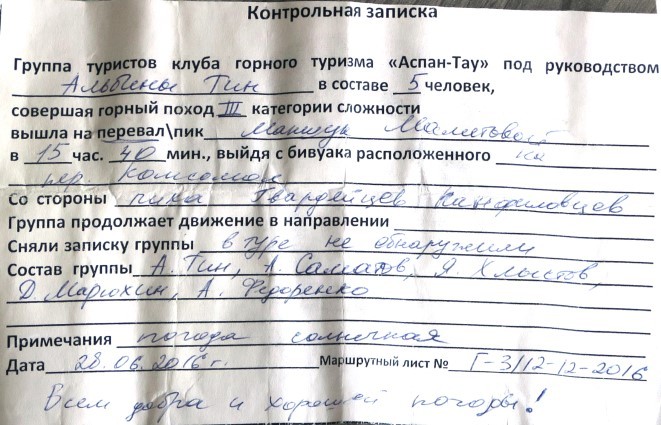 Контрольная записка
Группа туристов клуба горного туризма «Аспан-Тау» под руководством
Альбины Тин в составе 5 человек,
совершая горный поход III категории сложности
вышла на перевал\пик Маншук Маметовой
в 15 час. 40 мин., выйдя с бивуака расположенного на
пер. Комсомолец
Со стороны пика Гвардейцев Панфиловцев
Группа продолжает движение в направлении
Сняли записку группы в туре не обнаружили
Состав группы А. Тин, А. Салматов, Я. Хлыстов,
Д. Марюхин, А. Федоренко
Примечания погода солнечная
Дата 28.06.2016 г. Маршрутный лист № Г-3/12-12-2016
Всем добра и хорошей погоды!